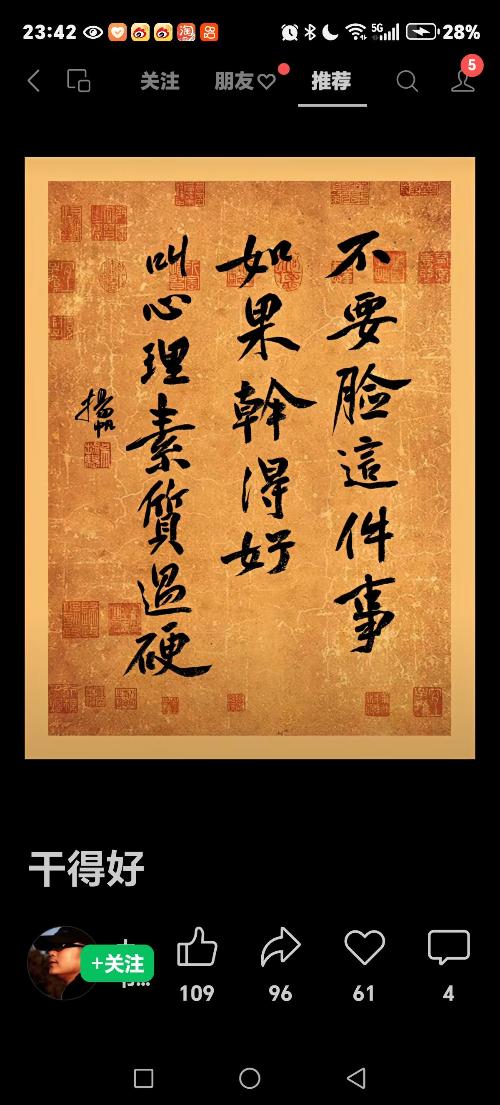 23:42
5G
28%
关注
朋友♡
推荐
5
不要脸這件事
如果幹得好
叫心理素質過硬
揚帆
干得好
+关注
109
96
61
4